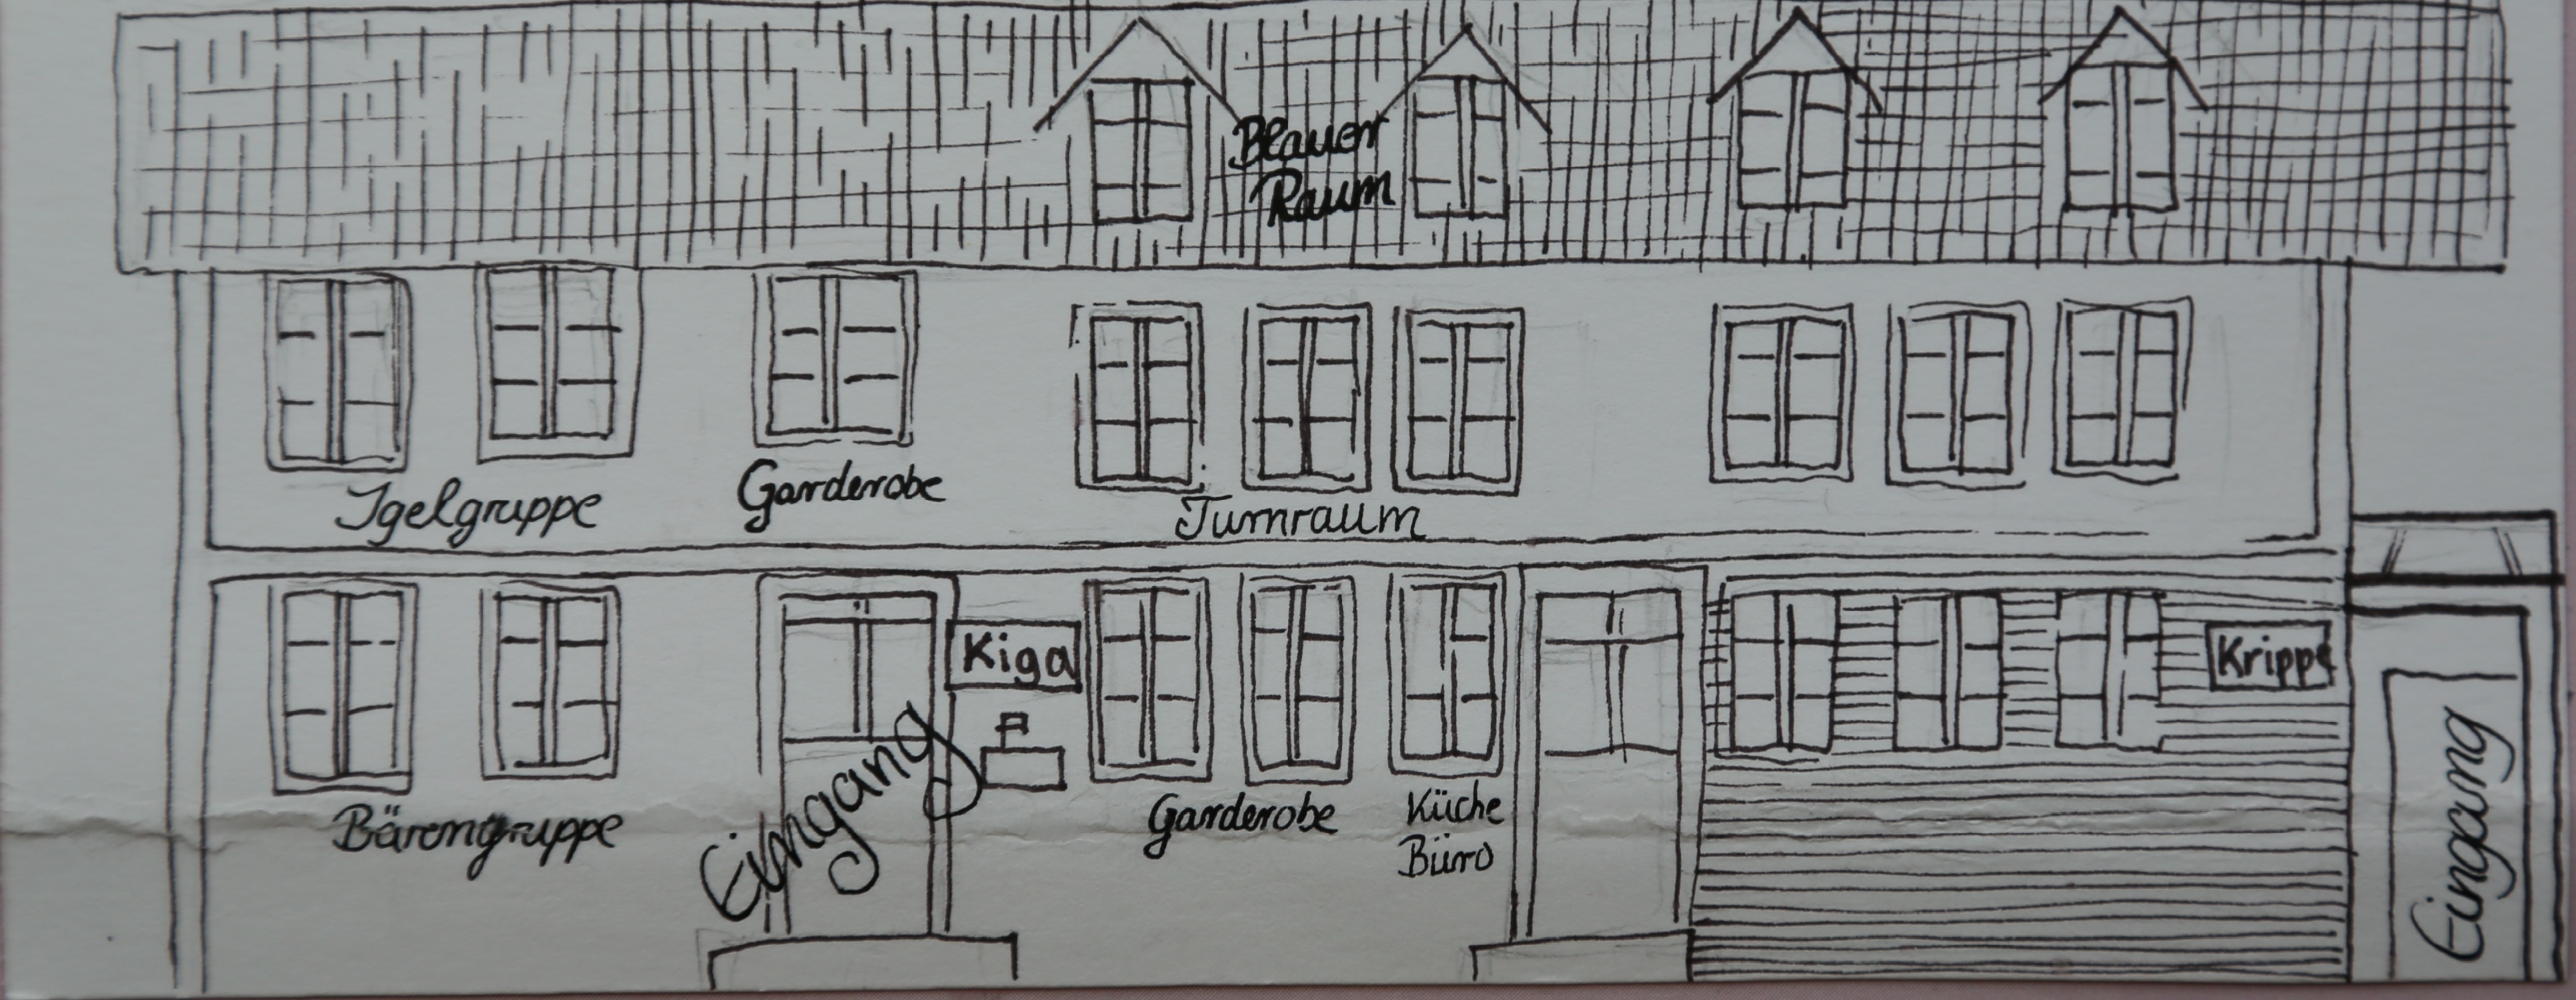 Blauer
Raum
Igelgruppe
Garderobe
Turnraum
Kiga
Krippe
Eingang
Bärengruppe
Garderobe
Küche
Büro
Eingang